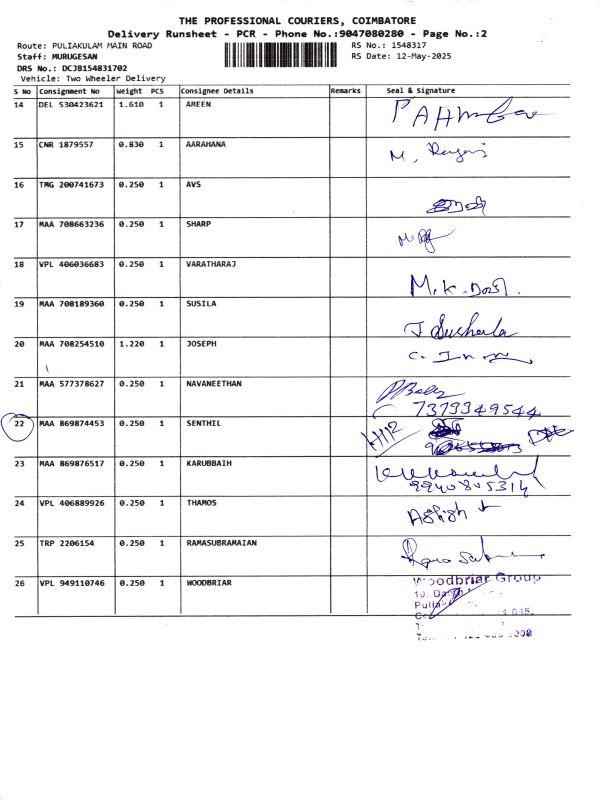 THE PROFESSIONAL COURIERS, COIMBATORE
Delivery Runsheet - PCR - Phone No.:9047080280 - Page No.:2
Route: PULIAKULAM MAIN ROAD
RS No.: 1548317
Staff: MURUGESAN
RS Date: 12-May-2025
DRS No.: DCJB154831702
Vehicle: Two Wheeler Delivery
S No Consignment No Weight PCS Consignee Details Remarks Seal & Signature
14 DEL 530423621 1.610 1 AMEEN
15 CNR 1879557 0.830 1 AARAHANA M.
16 TMG 200741673 0.250 1 AVS
17 MAA 708663236 0.250 1 SHARP
18 VPL 406036683 0.250 1 VARATHARAJ M.K.
19 MAA 708189360 0.250 1 SUSILA J Susheela
20 MAA 708254510 1.220 1 JOSEPH C.
21 MAA 577378627 0.250 1 NAVANEETHAN
7373349544
22 MAA 869874453 0.250 1 SENTHIL
23 MAA 869876517 0.250 1 KARUBBAIH
9940845314
24 VPL 406889926 0.250 1 THAMOS Ashish
25 TRP 2206154 0.250 1 RAMASUBRAMAIAN
26 VPL 949110746 0.250 1 WOODBRIAR Woodbriar Group